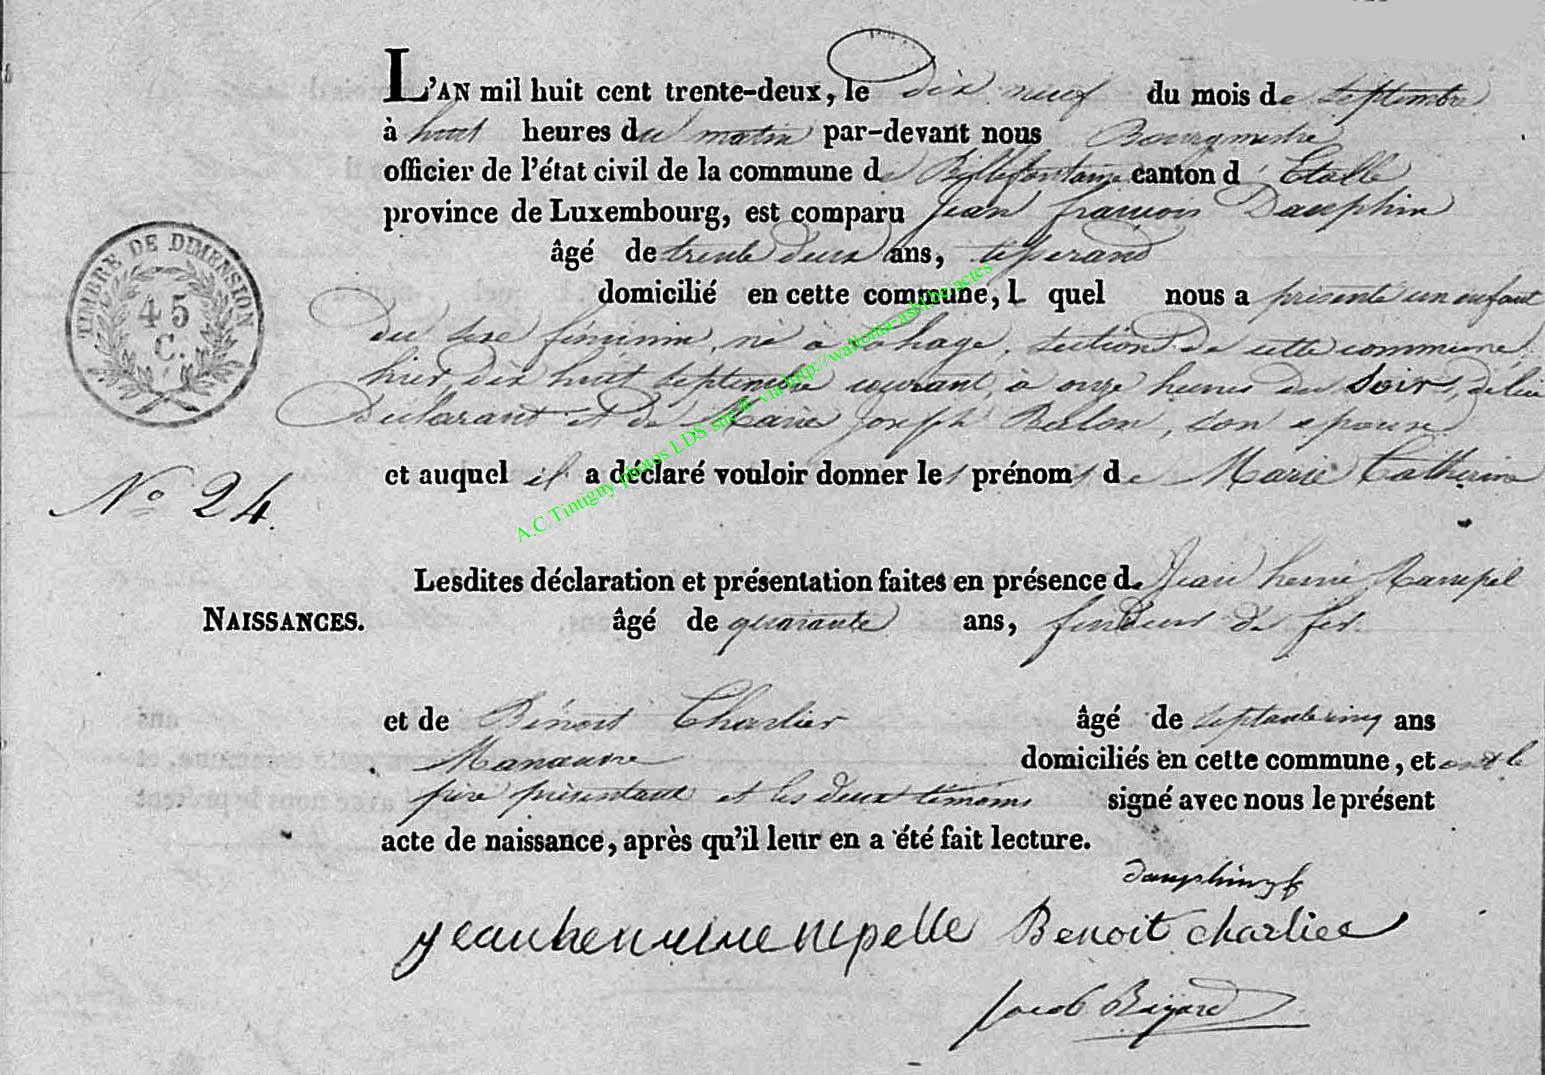 L'AN mil huit cent trente-deux, le dix neuf du mois de septembre
à huit heures du matin par-devant nous Bourgmestre
officier de l'état civil de la commune de Bellefontaine canton d'Etalle
province de Luxembourg, est comparu Jean françois Dauphin
âgé de trente deux ans, tisserand
domicilié en cette commune, L quel nous a présenté un enfant
du sexe féminin, né à Lahage, section de cette commune,
hier dix huit septembre courant, à onze heures du soir, de lui
Déclarant et de Marie Joseph Berlon, son epouse
et auquel il a déclaré vouloir donner les prénoms de Marie Catherine
TIMBRE DE DIMENSION
45
C.
No 24.
NAISSANCES.
Lesdites déclaration et présentation faites en présence de Jean henri
âgé de quarante ans, fondeur de fer
et de Bénoit Charlier âgé de septante cinq ans
Manœuvre domiciliés en cette commune, et ont le
père présentant et les deux témoins signé avec nous le présent
acte de naissance, après qu'il leur en a été fait lecture.
dauphin jf
jean henri Benoit charlier
Jacob
A.C Tintigny photos LDS sur via http://wallonia-asbl.be/actes